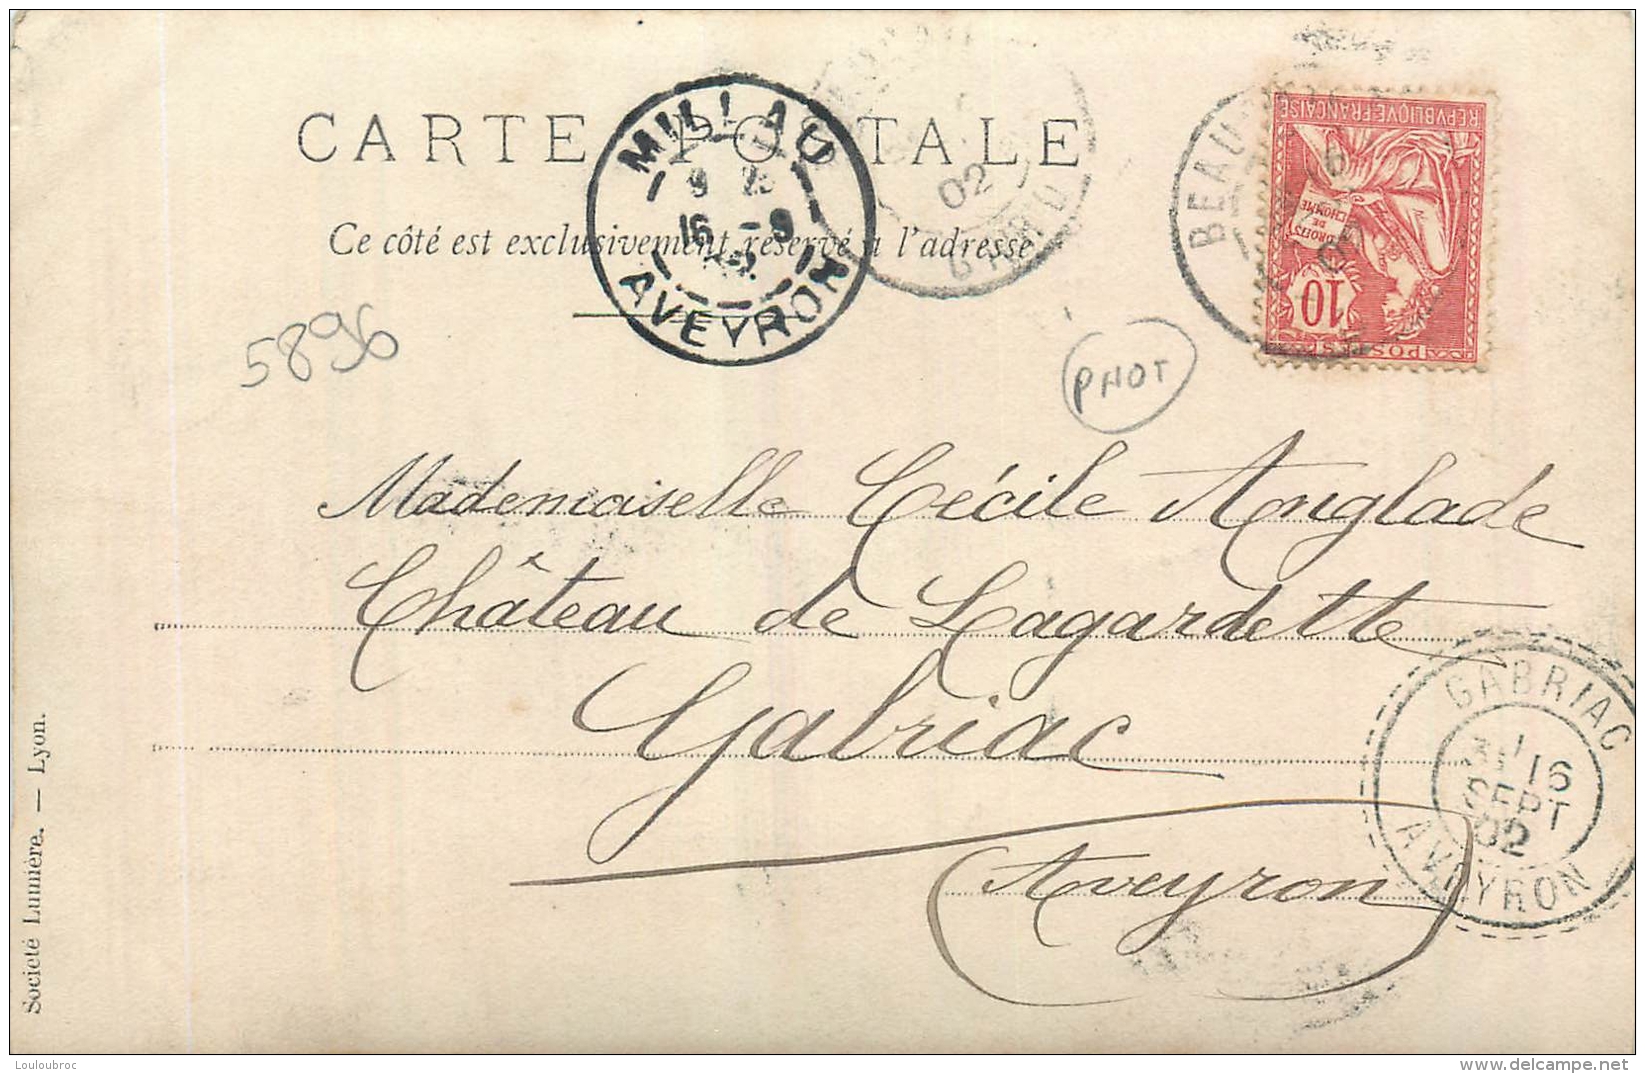 CARTE POSTALE
Ce côté est exclusivement réservé à l'adresse
MILLAU
16 -9
AVEYRON
02
BEAU
REPVBLIQVE FRANÇAISE
DROITS
DE
L'HOMME
10
POSTES
5896
PHOT
Mademoiselle Cécile Anglade
Château de Lagardette
Gabriac
(Aveyron)
GABRIAC
16
SEPT
02
AVEYRON
Société Lumière. — Lyon.
Louloubroc
www.delcampe.net